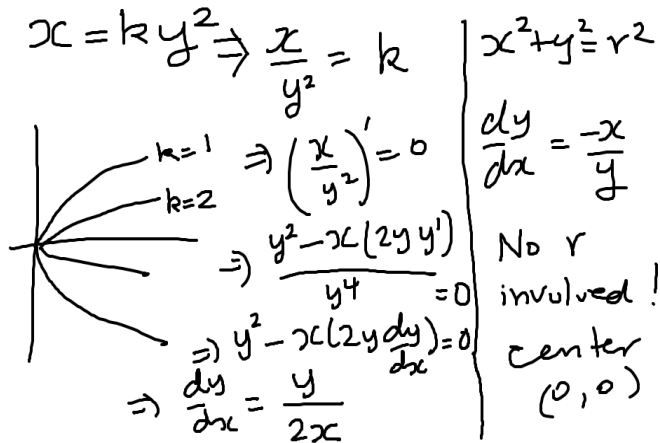 x = ky² ⇒ x/y² = k
k=1
k=2
⇒ (x/y²)' = 0
⇒ (y² - x(2y y'))/y⁴ = 0
⇒ y² - x(2y dy/dx) = 0
⇒ dy/dx = y/2x
x² + y² = r²
dy/dx = -x/y
No r
involved!
center
(0,0)